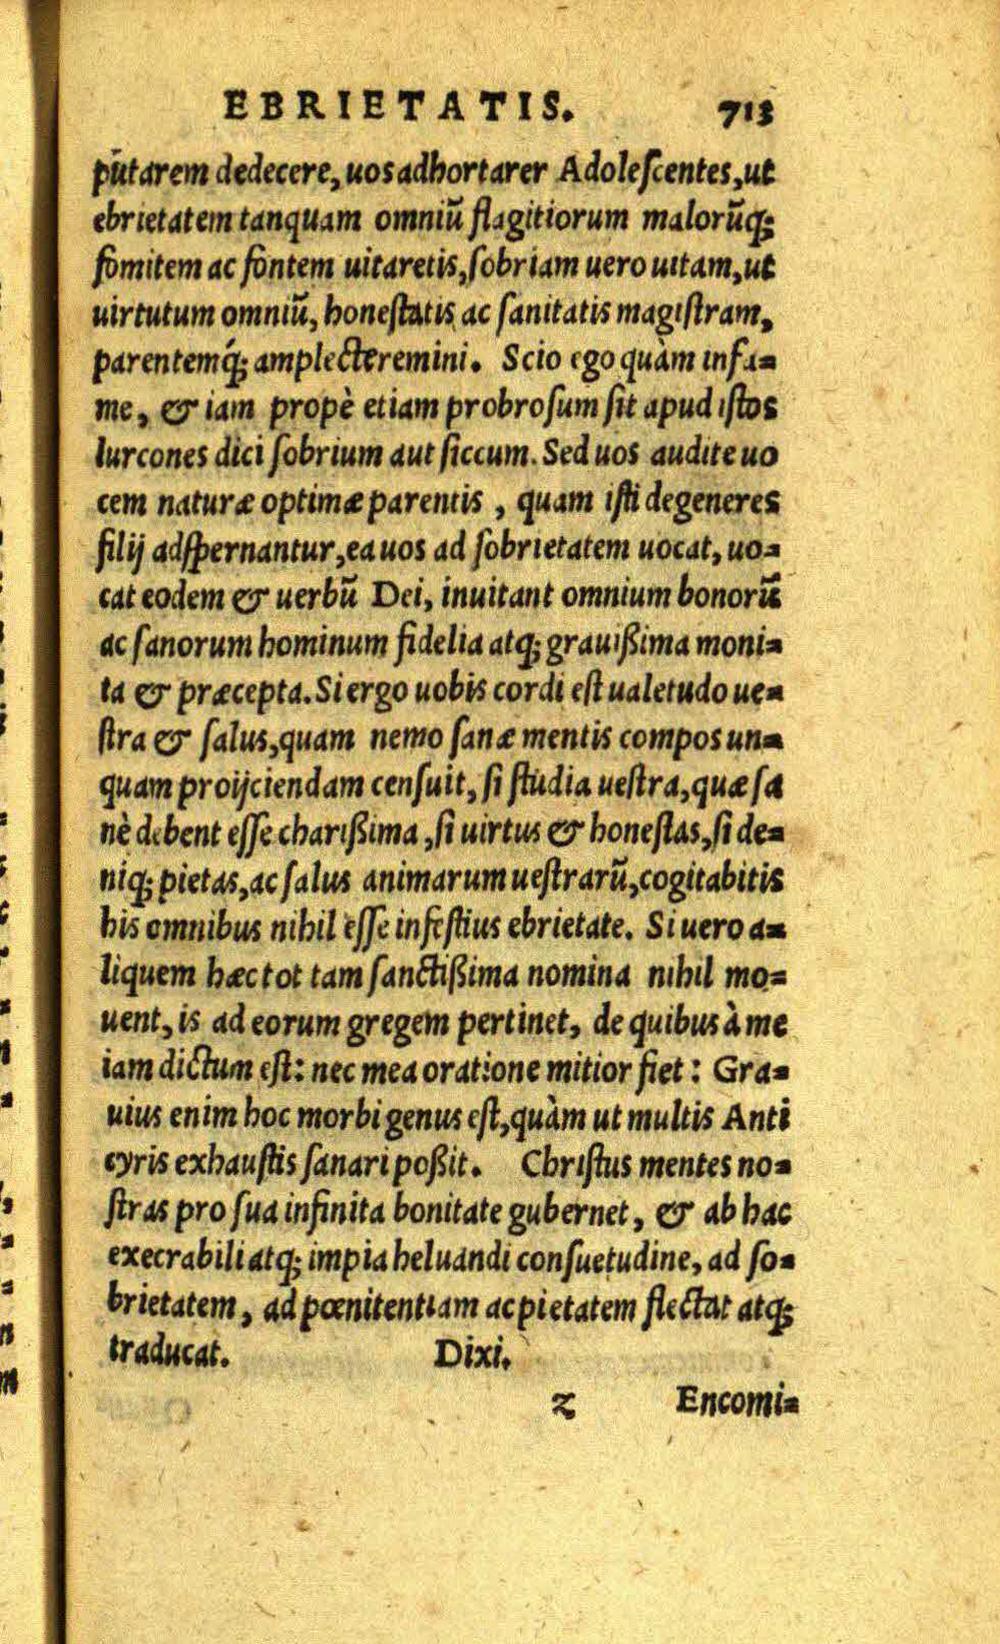 EBRIETATIS. 713
putarem dedecere, uos adhortarer Adoleſcentes, ut
ebrietatem tanquam omniũ flagitiorum malorũq;
fomitem ac fontem uitaretis, ſobriam uero uitam, ut
uirtutum omniũ, honeſtatis ac ſanitatis magiſtram,
parentemq́; amplecteremini. Scio ego quàm infa=
me, & iam propè etiam probroſum ſit apud iſtos
lurcones dici ſobrium aut ſiccum. Sed uos audite uo
cem naturæ optimæ parentis, quam iſti degeneres
filij adſpernantur, ea uos ad ſobrietatem uocat, uo=
cat eodem & uerbũ Dei, inuitant omnium bonorũ
ac ſanorum hominum fidelia atq; grauißima moni=
ta & præcepta. Si ergo uobis cordi eſt ualetudo ue=
ſtra & ſalus, quam nemo ſanæ mentis compos un=
quam proijciendam cenſuit, ſi ſtudia ueſtra, quæ ſa
nè debent eſſe charißima, ſi uirtus & honeſtas, ſi de=
niq; pietas, ac ſalus animarum ueſtrarũ, cogitabitis
his omnibus nihil eſſe infeſtius ebrietate. Si uero a=
liquem hæc tot tam ſanctißima nomina nihil mo=
uent, is ad eorum gregem pertinet, de quibus à me
iam dictum eſt: nec mea oratione mitior fiet: Gra=
uius enim hoc morbi genus eſt, quàm ut multis Anti
cyris exhauſtis ſanari poßit. Chriſtus mentes no=
ſtras pro ſua infinita bonitate gubernet, & ab hac
execrabili atq; impia heluandi conſuetudine, ad ſo=
brietatem, ad pœnitentiam ac pietatem flectat atq;
traducat. Dixi.
z Encomi=